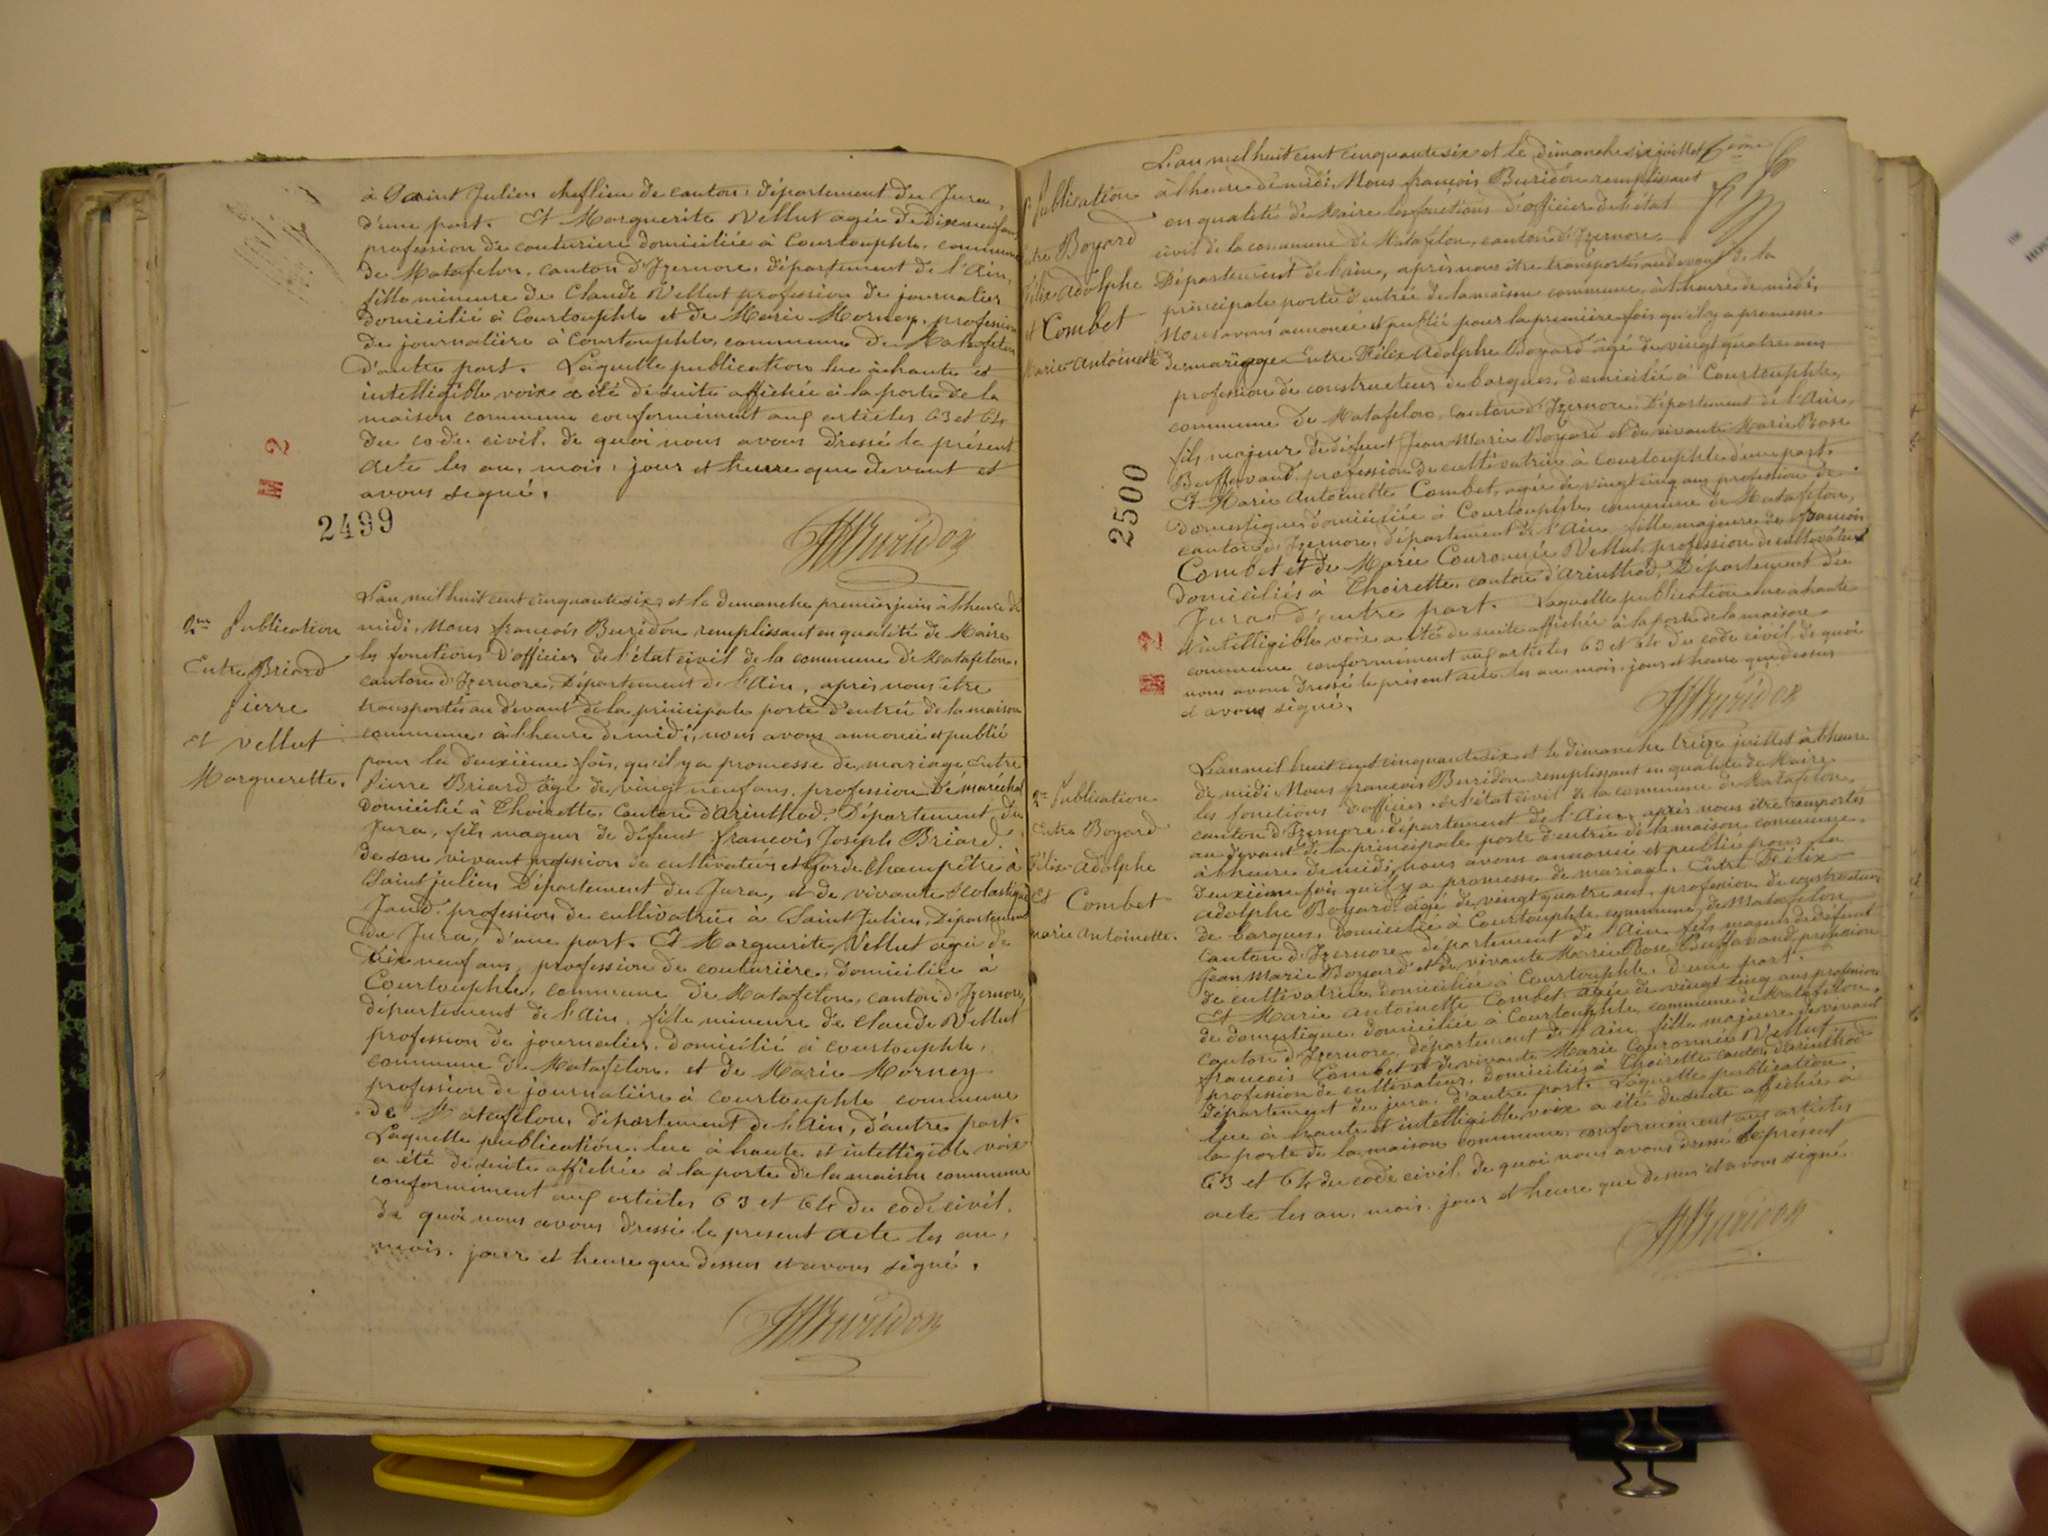 à Saint Julien cheflieu de canton, département du Jura,
d'une part. Et Marguerite Vellut agée de dixneuf ans
profession de couturiere domiciliée à Courtouphle, commune
de Matafelon, canton d'Izernore, département de l'Ain,
fille mineure de Claude Vellut profession de journalier
domicilié à Courtouphle et de Marie Morney, profession
de journalière à Courtouphle, commune de Matafelon
d'autre part. Laquelle publication lue à haute et
intelligible voix a été de suite affichée à la porte de la
maison commune conformément aux articles 63 et 64
du code civil, de quoi nous avons dressé le présent
acte les an, mois, jour et heure que devant et
avons signé.
2499
Buridon
2me Publication
Entre Briard
Pierre
et Vellut
Marguerette.
L'an mil huit cent cinquante six et le dimanche premier juin à l'heure de
midi, Nous françois Buridon remplissant en qualité de Maire
les fonctions d'officier de l'état civil de la commune de Matafelon,
canton d'Izernore, Département de l'Ain, après nous être
transportés au devant de la principale porte d'entrée de la maison
commune à l'heure de midi, nous avons annoncé et publié
pour la deuxième fois, qu'il y a promesse de mariage Entre
Pierre Briard âgé de vingt neuf ans, profession de maréchal
domicilié à Thoirette, canton d'Arinthod, Département du
Jura, fils majeur de défunt françois Joseph Briard,
de son vivant profession de cultivateur et Garde Champêtre à
Saint julien Département du Jura, et de vivante Scolastique
Jaud profession de cultivatrice à Saint Julien, Département
du Jura, d'une part. Et Marguerite Vellut agée de
dix neuf ans, profession de couturière, domiciliée à
Courtouphle, commune de Matafelon, canton d'Izernore,
département de l'Ain, fille mineure de Claude Vellut
profession de journalier, domicilié à courtouphle,
commune de Matafelon, et de Marie Morney
profession de journalière à courtouphle commune
de Matafelon, département de l'Ain, d'autre part.
Laquelle publication lue à haute et intelligible voix
a été de suite affichée à la porte de la maison commune
conformément aux articles 63 et 64 du code civil,
de quoi nous avons dressé le present acte les an,
mois, jour et heure que dessus et avons signé.
Buridon
Publication
Entre Boyard
Félix Adolphe
et Combet
Marie Antoinette
L'an mil huit cent cinquante six et le dimanche six juillet
à l'heure de midi, Nous françois Buridon remplissant
en qualité de Maire les fonctions d'officier de l'état
civil de la commune de Matafelon, canton d'Izernore
Département de l'ain, après nous être transportés au devant de la
principale porte d'entrée de la maison commune à l'heure de midi,
nous avons annoncé et publié pour la première fois qu'il y a promesse
de mariage Entre Félix Adolphe Boyard âgé de vingt quatre ans
profession de constructeur de barques, domicilié à Courtouphle,
commune de Matafelon, canton d'Izernore, Département de l'Ain,
fils majeur de défunt Jean Marie Boyard et de vivante Marie Rose
Buffavand profession de cultivatrice à Courtouphle d'une part.
Et Marie Antoinette Combet, agée de vingt cinq ans profession de
domestique, domiciliée à Courtouphle, commune de Matafelon,
canton d'Izernore, département de l'Ain fille majeure de françois
Combet et de Marie Couronnée Vellut profession de cultivateur
domiciliés à Thoirette, canton d'Arinthod, Département du
Jura d'autre part. Laquelle publication lue à haute
et intelligible voix a été de suite affichée à la porte de la maison
commune conformément aux articles 63 et 64 du code civil, de quoi
nous avons dressé le présent acte les an, mois, jour et heure que dessus
et avons signé.
2500
Buridon
2me Publication
Entre Boyard
Félix Adolphe
Et Combet
marie Antoinette.
L'an mil huit cent cinquante six et le dimanche treize juillet à l'heure
de midi Nous françois Buridon remplissant en qualité de Maire
les fonctions d'officier de l'état civil de la commune de Matafelon
canton d'Izernore, département de l'Ain, après nous être transportés
au devant de la principale porte d'entrée de la maison commune,
à l'heure de midi, nous avons annoncé et publié pour la
deuxième fois qu'il y a promesse de mariage, Entre Félix
Adolphe Boyard âgé de vingt quatre ans, profession de constructeur
de barques, domicilié à Courtouphle commune de Matafelon
canton d'Izernore département de l'Ain fils majeur de défunt
Jean Marie Boyard et de vivante Marie Rose Buffavand profession
de cultivatrice domiciliée à Courtouphle, d'une part.
Et Marie Antoinette Combet, agée de vingt cinq ans profession
de domestique, domiciliée à Courtouphle commune de Matafelon,
canton d'Izernore, département de l'Ain, fille majeure de vivant
françois Combet et de vivante Marie Couronnée Vellut
profession de cultivateur, domiciliés à Thoirette canton d'Arinthod
département du jura, d'autre part. Laquelle publication,
lue à haute et intelligible voix a été de suite affichée à
la porte de la maison commune, conformément aux articles
63 et 64 du code civil, de quoi nous avons dressé le présent
acte les an, mois, jour et heure que dessus et avons signé
Buridon